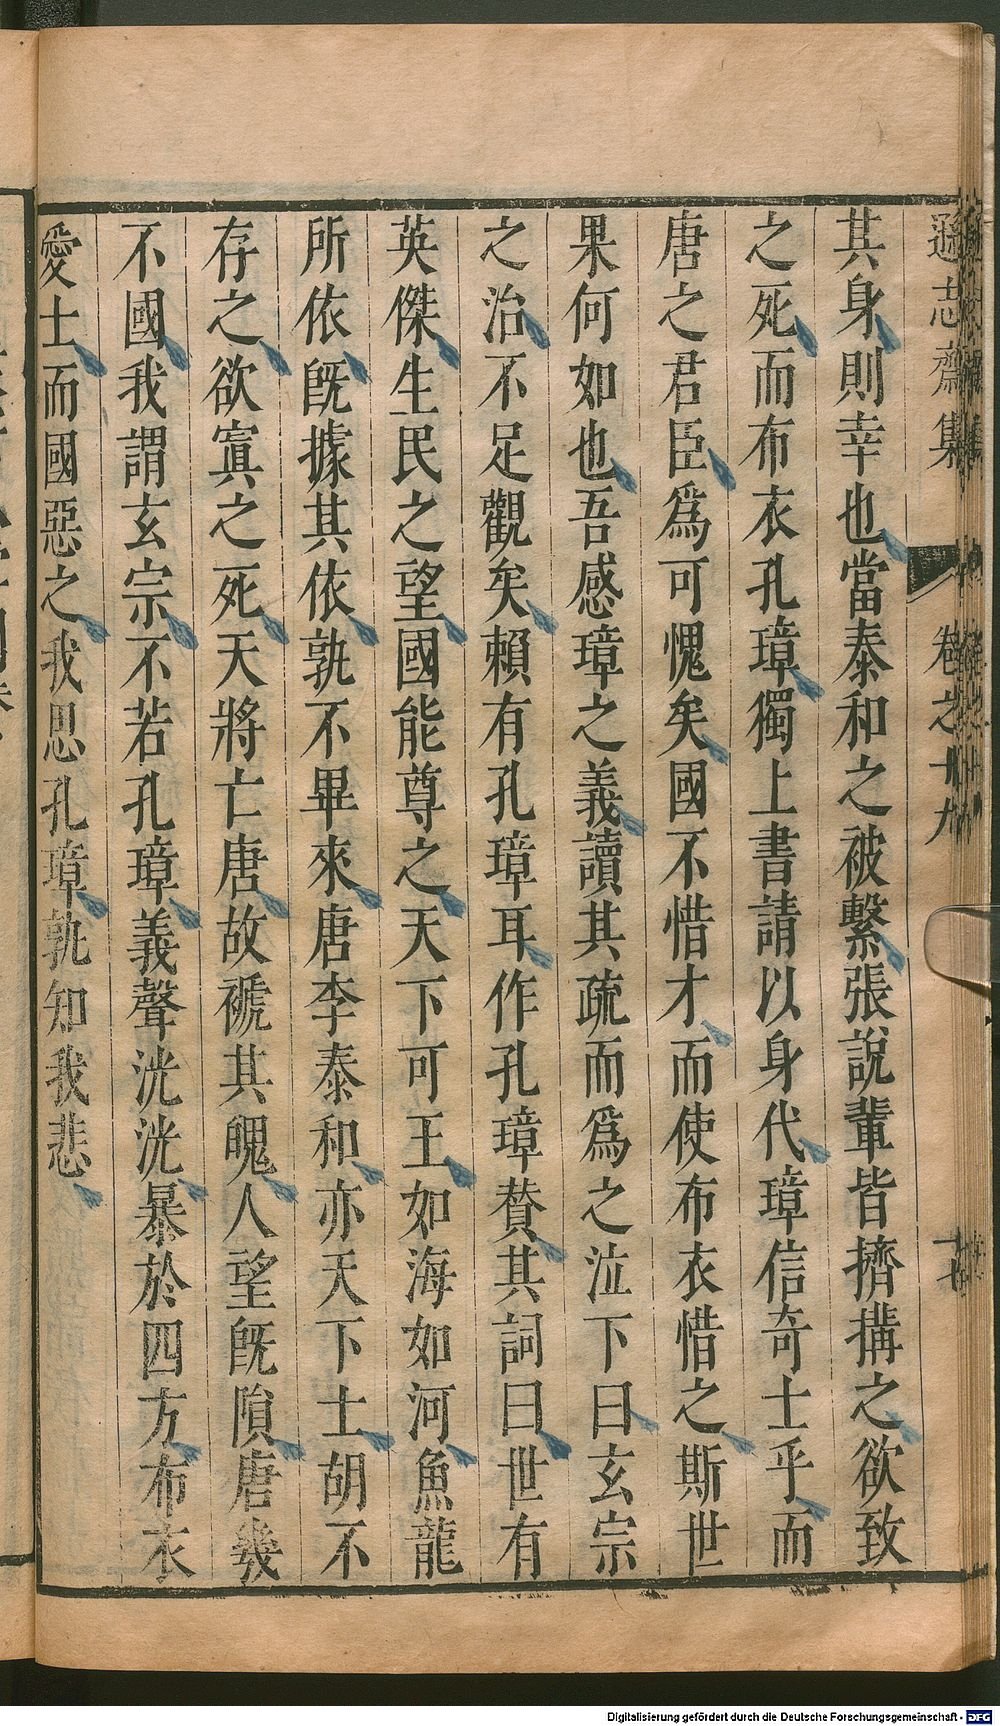 遜志齋集 卷之十九 十七
其身則幸也當泰和之被繫張說輩皆擠搆之欲致
之死而布衣孔璋獨上書請以身代璋信奇士乎而
唐之君臣爲可愧矣國不惜才而使布衣惜之斯世
果何如也吾感璋之義讀其疏而爲之泣下曰玄宗
之治不足觀矣賴有孔璋耳作孔璋賛其詞曰世有
英傑生民之望國能尊之天下可王如海如河魚龍
所依旣據其依孰不畢來唐李泰和亦天下士胡不
存之欲寘之死天將亡唐故褫其魄人望旣隕唐幾
不國我謂玄宗不若孔璋義聲洸洸暴於四方布衣
愛士而國惡之我思孔璋孰知我悲
Digitalisierung gefördert durch die Deutsche Forschungsgemeinschaft - DFG